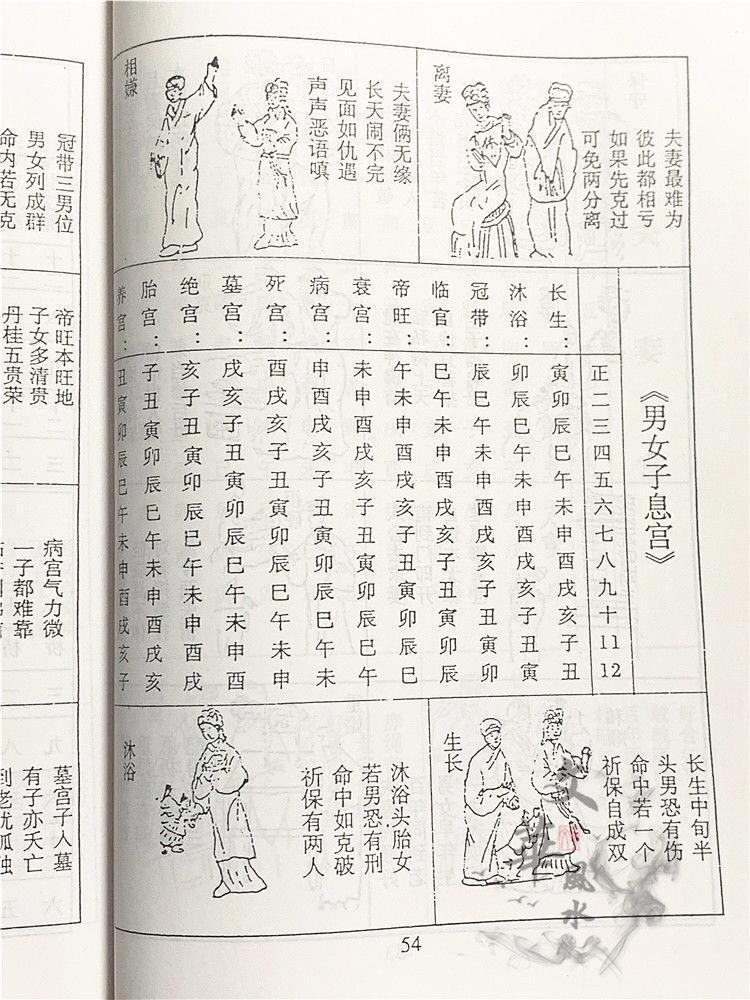 夫妻最难为
彼此都相亏
如果先克过
可免两分离
离妻
夫妻俩无缘
长天闹不完
见面如仇遇
声声恶语嗔
相嫌
《男女子息宫》
正二三四五六七八九十11 12
长生：寅卯辰巳午未申酉戌亥子丑
沐浴：卯辰巳午未申酉戌亥子丑寅
冠带：辰巳午未申酉戌亥子丑寅卯
临官：巳午未申酉戌亥子丑寅卯辰
帝旺：午未申酉戌亥子丑寅卯辰巳
衰宫：未申酉戌亥子丑寅卯辰巳午
病宫：申酉戌亥子丑寅卯辰巳午未
死宫：酉戌亥子丑寅卯辰巳午未申
墓宫：戌亥子丑寅卯辰巳午未申酉
绝宫：亥子丑寅卯辰巳午未申酉戌
胎宫：子丑寅卯辰巳午未申酉戌亥
养宫：丑寅卯辰巳午未申酉戌亥子
长生中旬半
头男恐有伤
命中若一个
祈保自成双
生长
沐浴头胎女
若男恐有刑
命中如克破
祈保有两人
沐浴
54
冠带三男位
男女列成群
命内若无克
帝旺本旺地
子女多清贵
丹桂五贵荣
病宫气力微
一子都难靠
墓宫子人墓
有子亦夭亡
到老犹孤独
文華風水